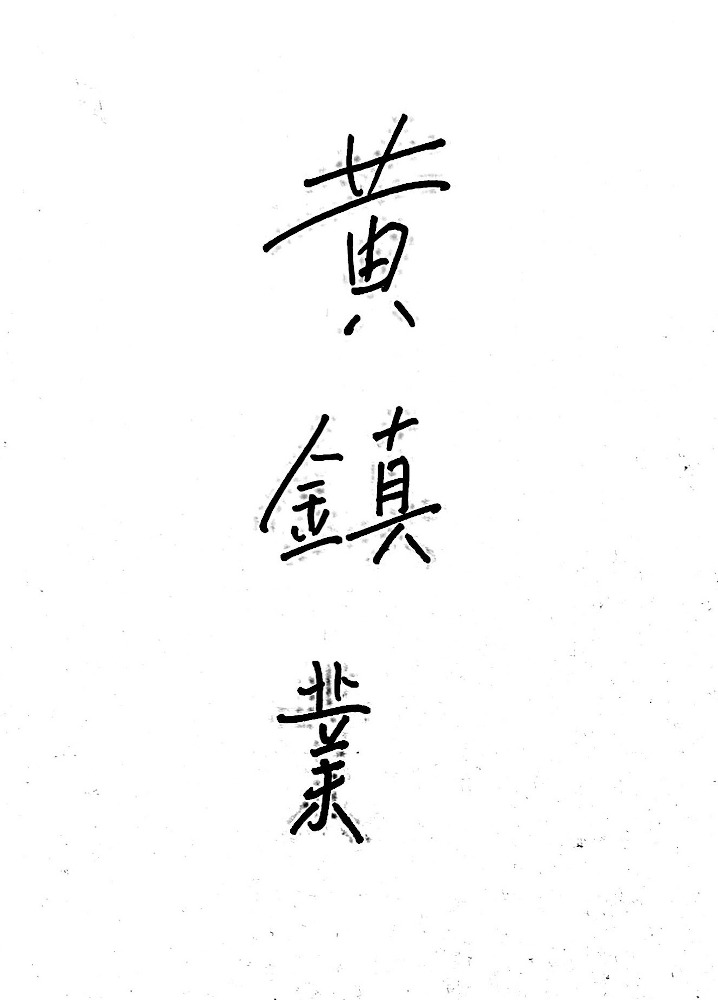 黄鎮業